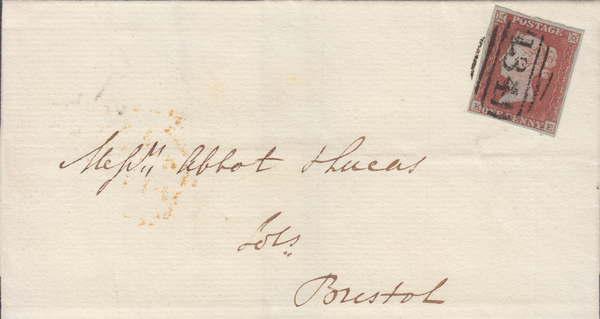 POSTAGE
ONE PENNY
Messrs Abbot & Lucas
Sols
Bristol